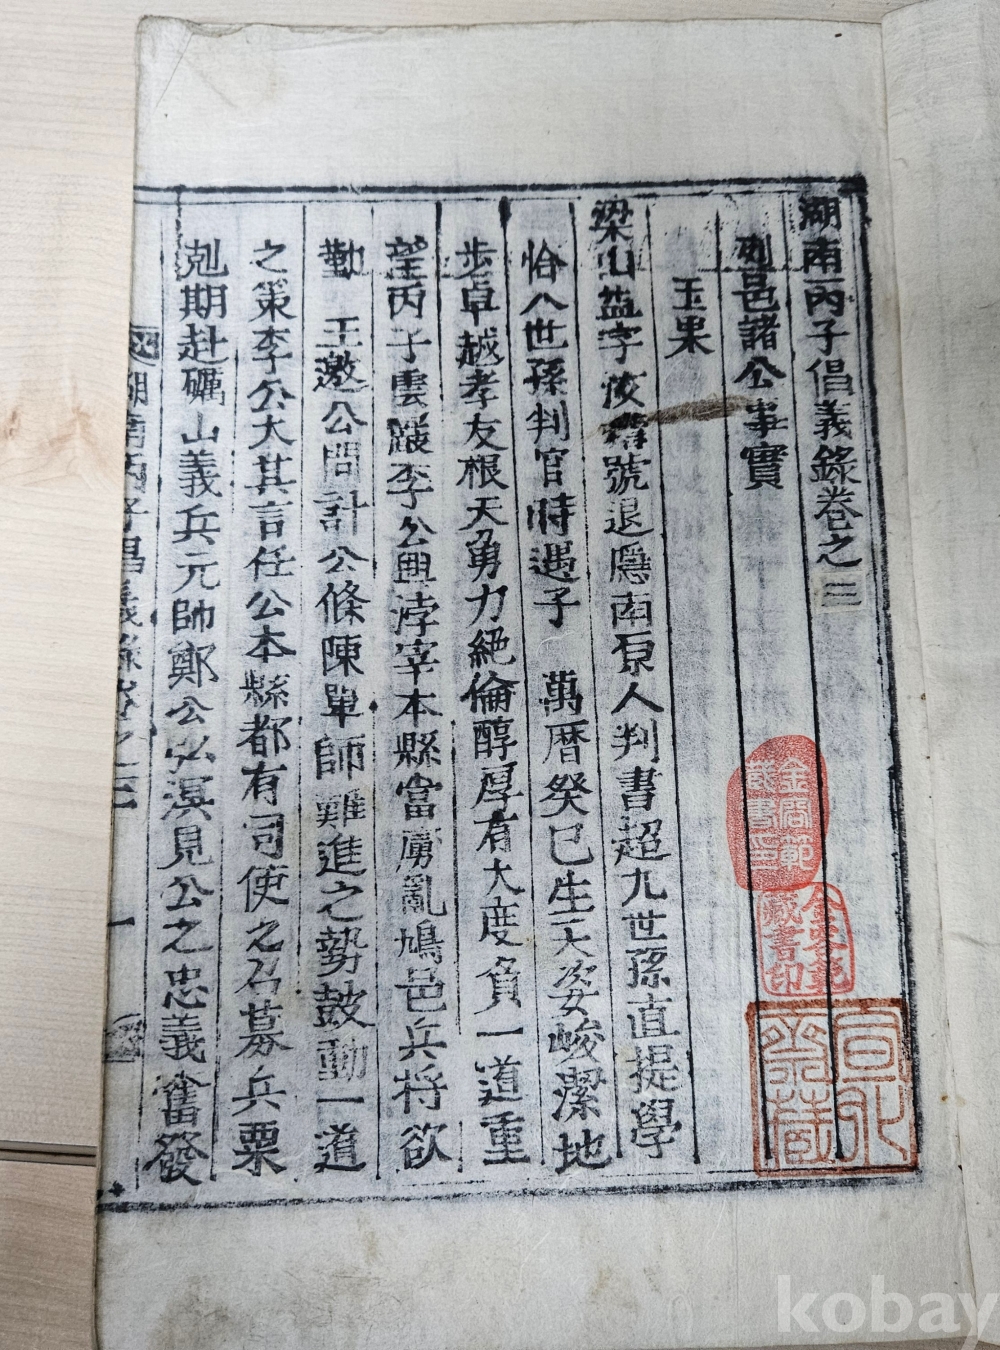 湖南丙子倡義錄卷之三
列邑諸公事實
玉果
梁山益字汝 號退隱南原人判書超九世孫直提學
恰八世孫判官時遇子 萬曆癸巳生天姿峻潔地
步卓越孝友根天勇力絕倫醇厚有大度負一道重
望丙子雲巖李公興浡宰本縣當虜亂鳩邑兵將欲
勤 王邀公問計公條陳單師難進之勢鼓動一道
之策李公大其言任公本縣都有司使之召募兵粟
剋期赴礪山義兵元帥鄭公弘溟見公之忠義奮發
湖南丙子倡義錄卷之三
一
金問範
藏書印
藏書印
kobay